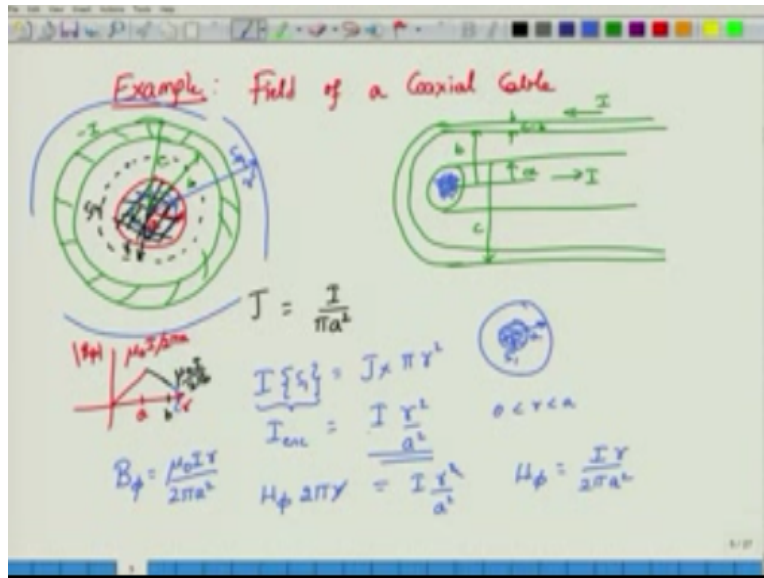 Example: Field of a Coaxial Cable
-I
c
b
a
I
b
c
a
→I
J = I / πa²
|Bφ|
μ₀I/2πa
a
b
r
I{S₁} = J × πr²
I_enc = I r²/a²
0 < r < a
S₁
Bφ = μ₀Ir / 2πa²
Hφ 2πr = I r²/a²
Hφ = Ir / 2πa²